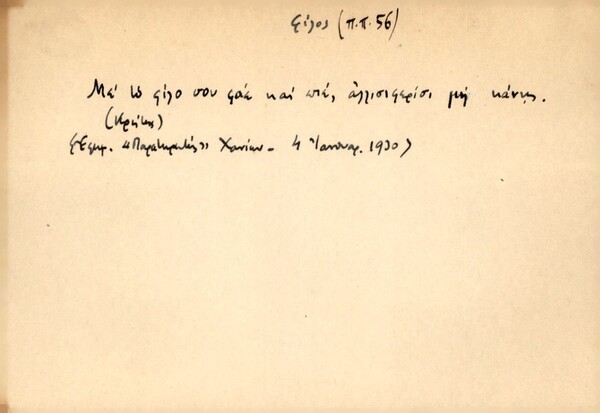 φίλος (π.π. 56)
Μέ τό φίλο σου φάε καί πιέ, ἀλλισιφερίσι μή κάνης.
(Κρήτης)
(Ἐφημ. «Παρατηρητής» Χανίων - 4 Ἰανουαρ. 1930)